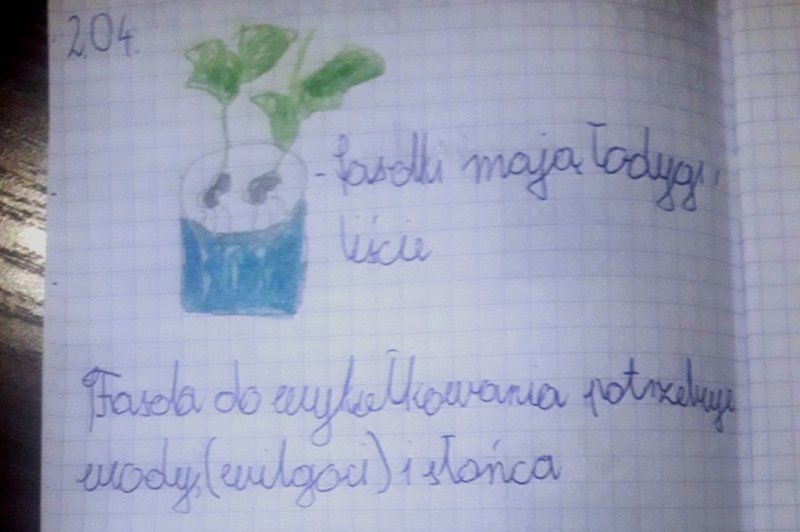 2.04.
- fasolki mają łodygi i
liście
Fasola do wykiełkowania potrzebuje
wody, (wilgoci) i słońca